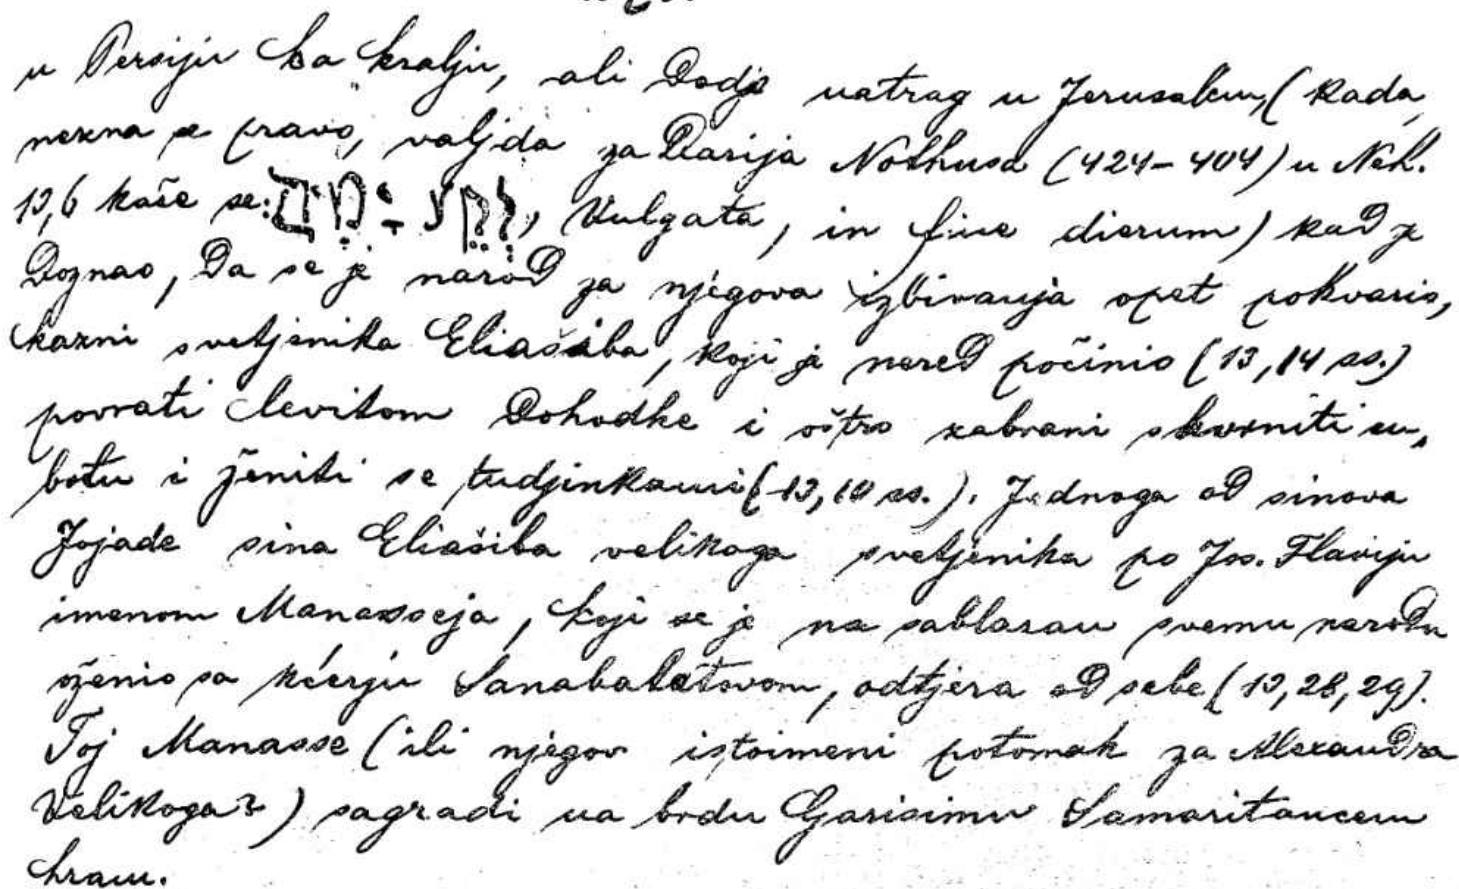 u Persiju ka kralju, ali dodje natrag u Jerusalem (kada,
nezna se pravo, valjda za Darija Nothusa (424-404) u Neh.
13,6 kaže se: לְקֵץ יָמִים, Vulgata, in fine dierum) kad je
doznao, da se je narod za njegova izbivanja opet pokvario,
kazni svetjenika Eliašiba, koji je nered počinio (13,14 ss.)
povrati levitom dohodke i oštro zabrani skvrniti su„
botu i ženiti se tudjinkami (13,10 ss.). Jednoga od sinova
Jojade sina Eliašiba velikoga svetjenika po Jos. Flaviju
imenom Manasseja, koji se je na sablazan svemu narodu
oženio sa kćerju Sanabalatovom, odtjera od sebe (13,28,29).
Toj Manasse (ili njegov istoimeni potomak za Alexandra
Velikoga?) sagradi na brdu Garisimu Samaritancem
hram.